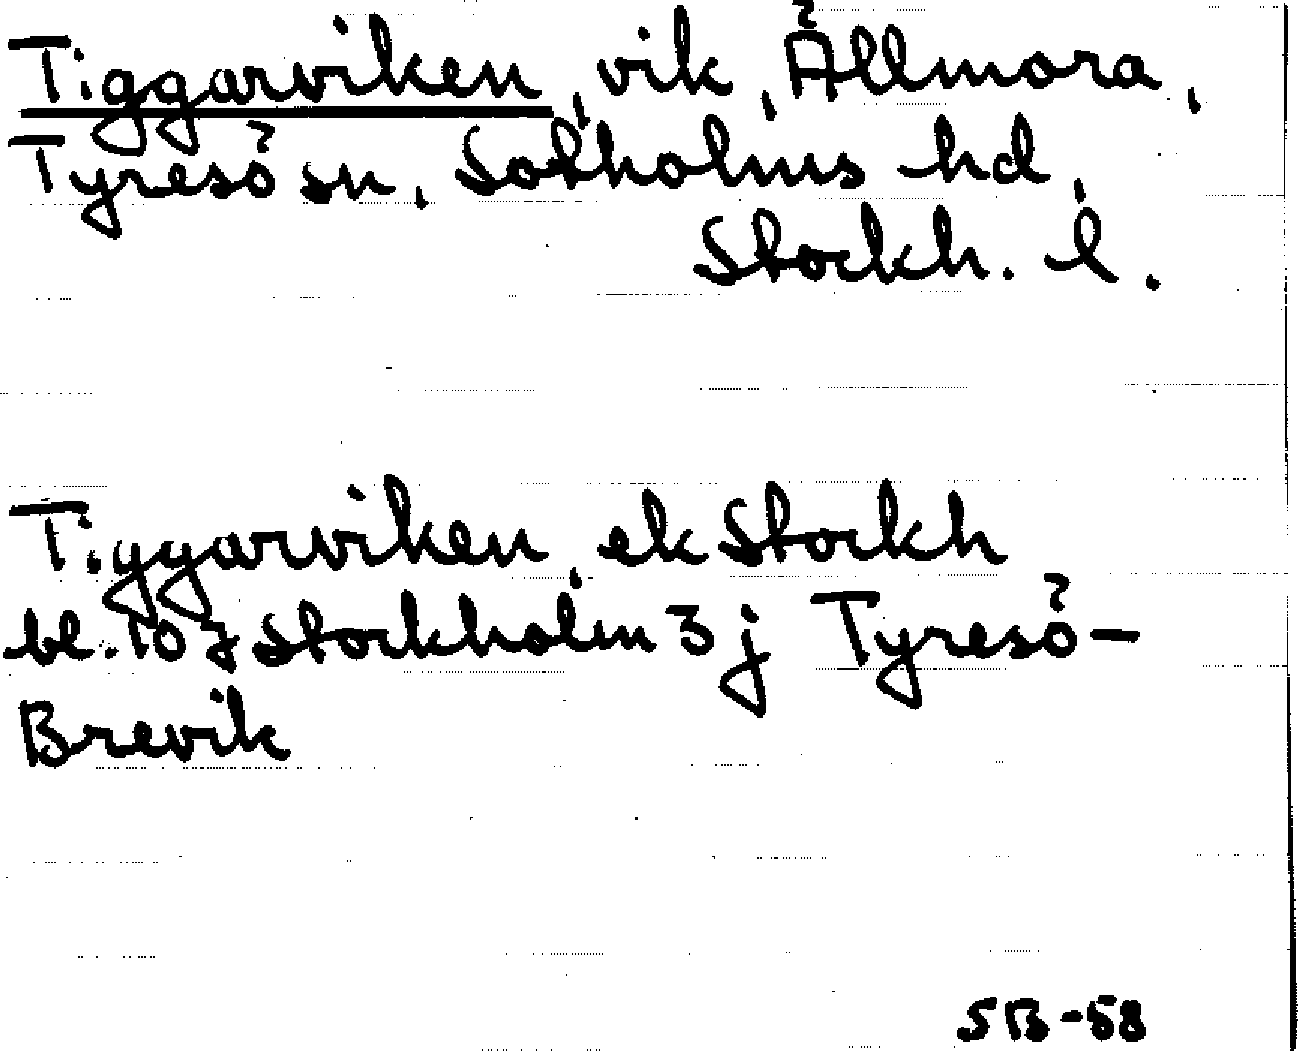 Tiggarviken, vik, Ällmora,
Tyresö sn, Sotholms hd,
Stockh. l.
Tiggarviken, ek Stockh
bl. 107 Stockholm 3j Tyresö-
Brevik
SB-58